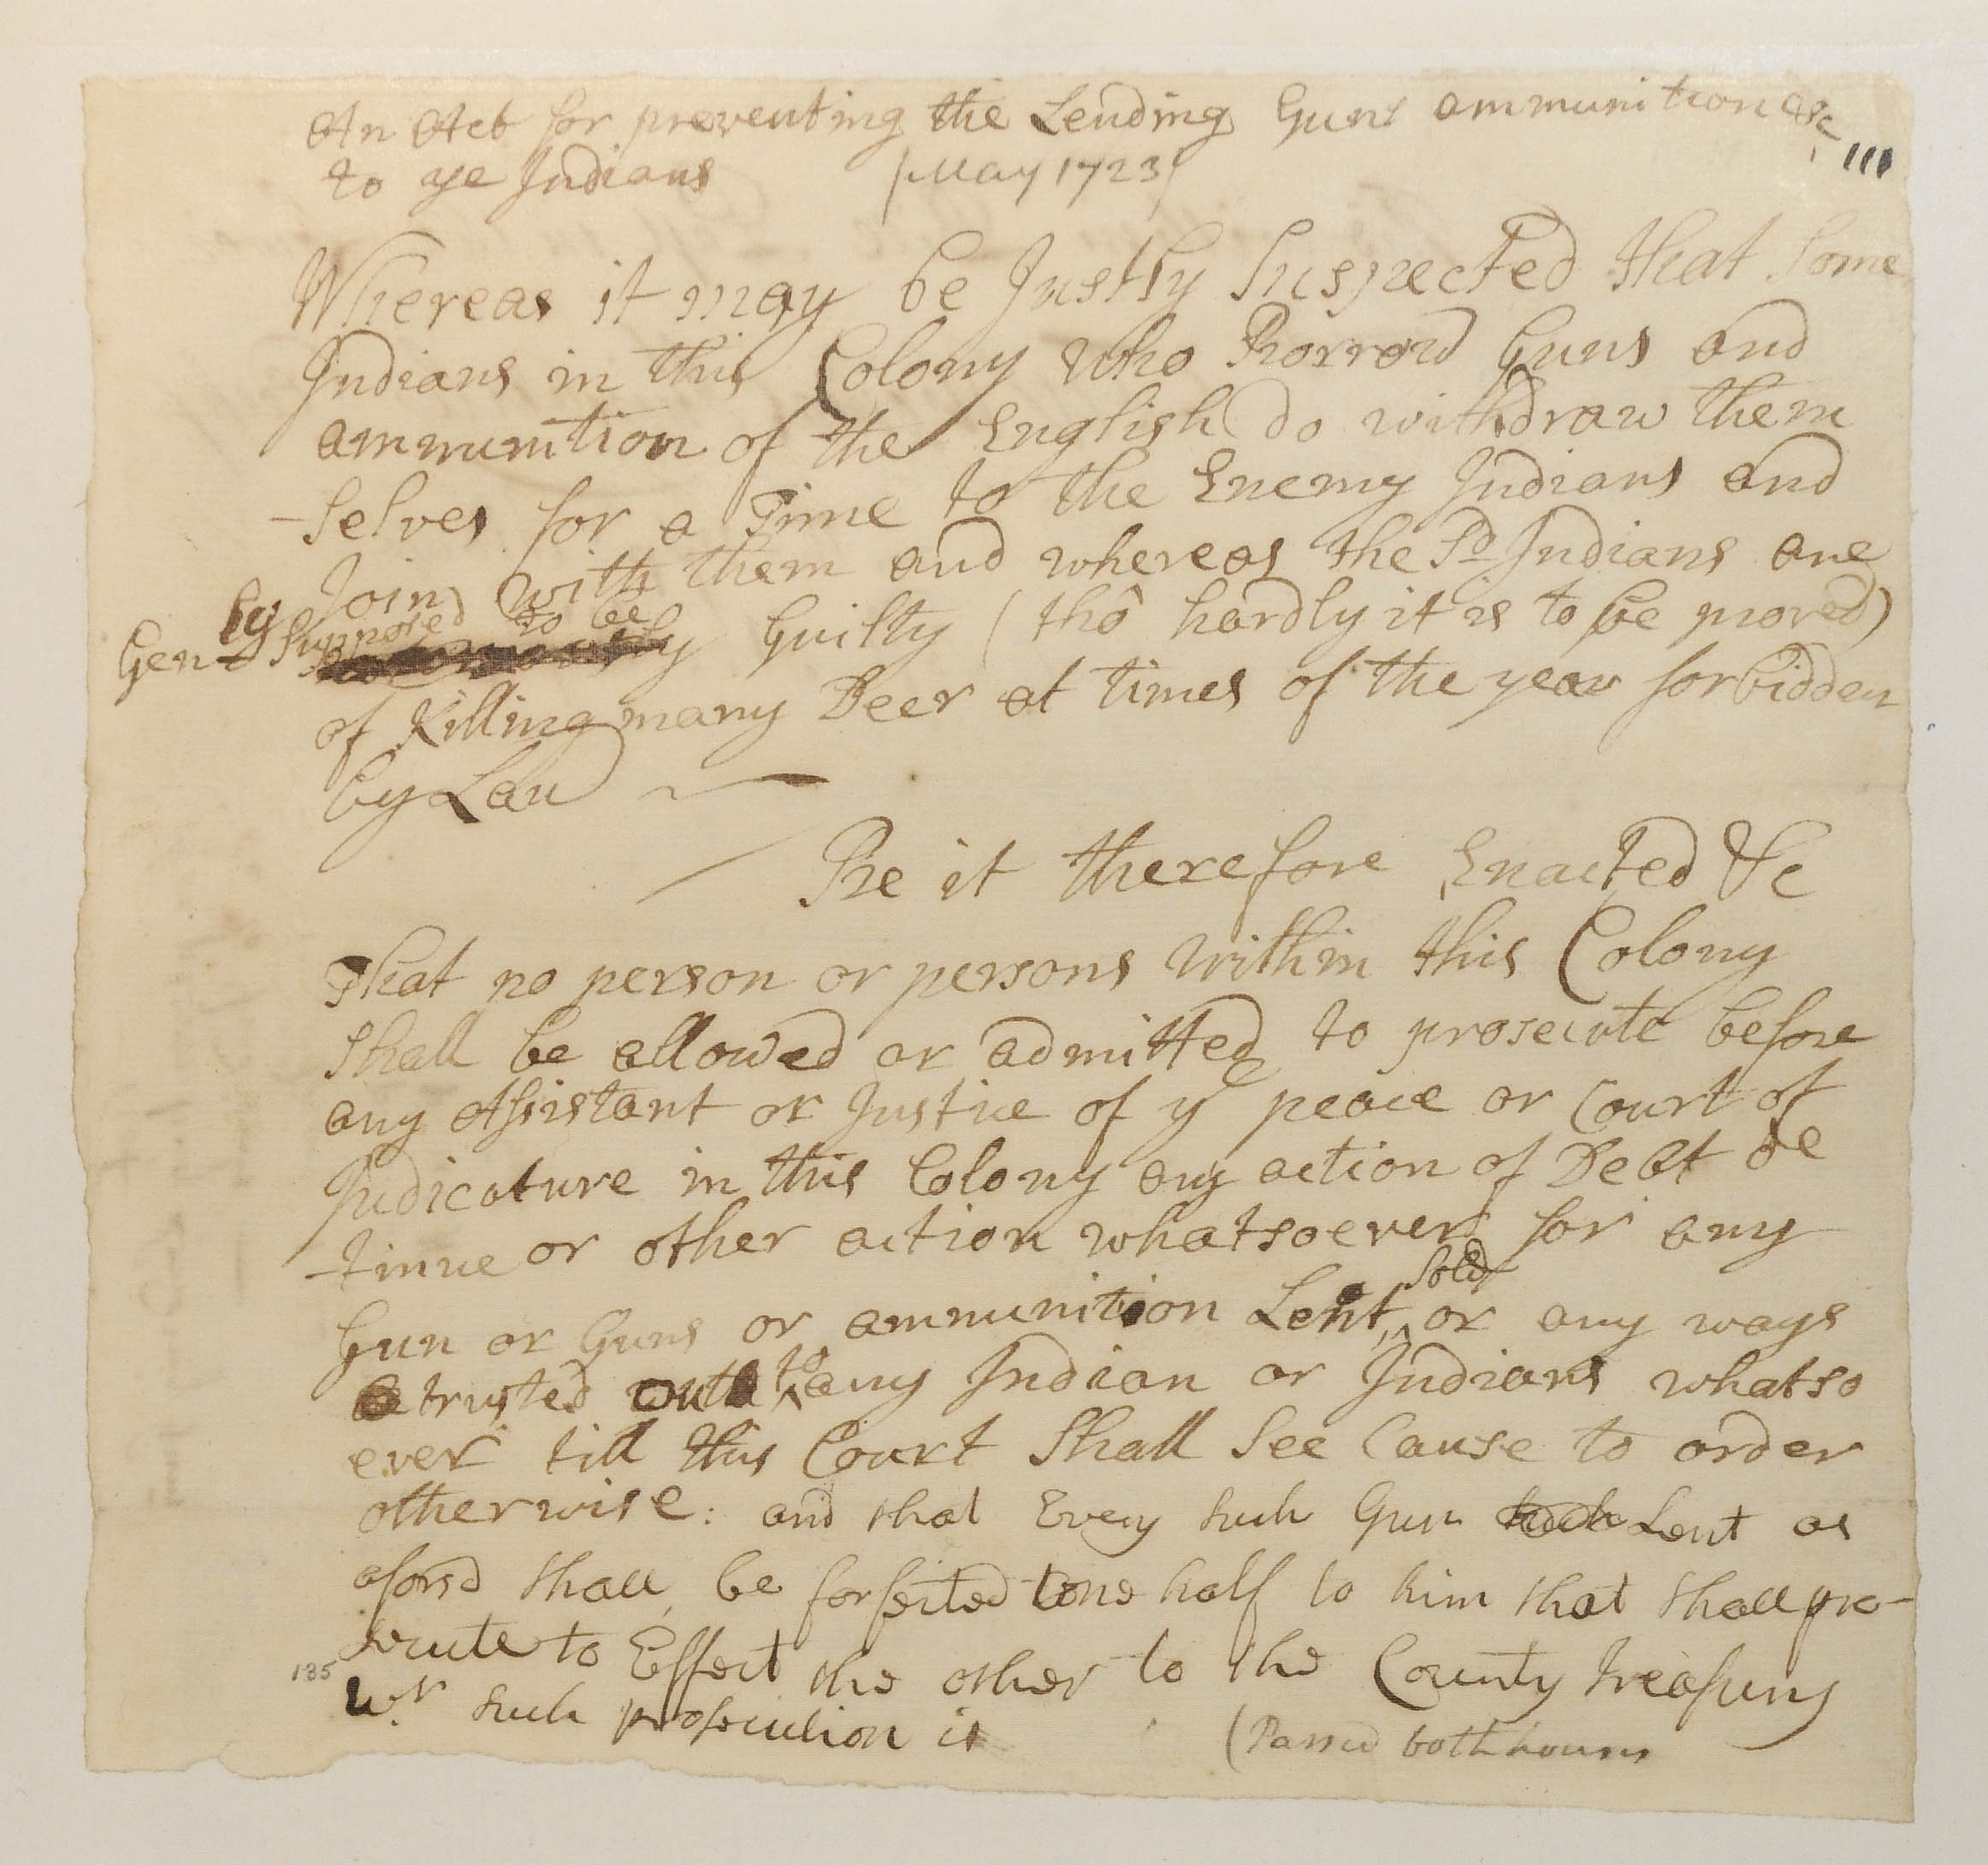 An Act for preventing the Lending Guns ammunition &c
to ye Indians (May 1723) 111
Whereas it may be Justly Suspected that Some
Indians in this Colony who Borrow Guns and
ammunition of the English do withdraw them
-selves for a Time to the Enemy Indians and
Join with them and whereas the Sd Indians are
Genly Supposed to be Guilty (tho hardly it is to be proved)
of Killing many Deer at times of the year forbidden
by Law
Be it therefore Enacted &c
That no person or persons within this Colony
Shall be allowed or admitted to prosecute before
any Assistant or Justice of ye peace or Court of
Judicature in this Colony any action of Debt de
-tinue or other action whatsoever for any
Gun or Guns or ammunition Lent, Sold or any ways
trusted out to any Indian or Indians whatso
ever till this Court Shall See Cause to order
otherwise: and that Every such Gun Lent as
aforsd shall be forfeited one half to him that shall pro-
secute to Effect the other to the County treasury
135 wr such prosecution is (Passd both houses